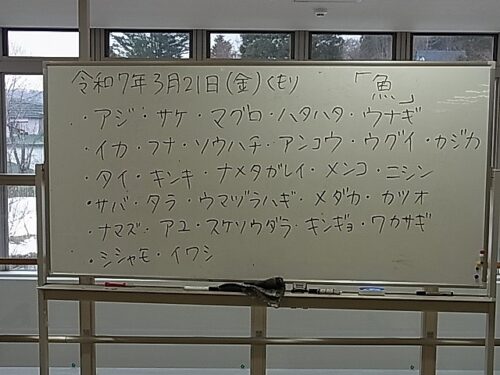 令和7年3月21日(金)くもり 「魚」
・アジ・サケ・マグロ・ハタハタ・ウナギ
・イカ・フナ・ソウハチ・アンコウ・ウグイ・カジカ
・タイ・キンキ・ナメタガレイ・メンコ・ニシン
・サバ・タラ・ウマヅラハギ・メダカ・カツオ
・ナマズ・アユ・スケソウダラ・キンギョ・ワカサギ
・シシャモ・イワシ